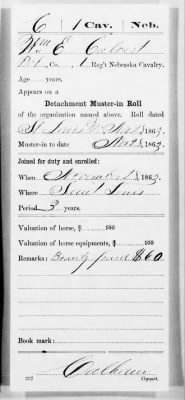 C | 1 | Cav. | Neb.
Wm E Calvert
Pvt, Co. , 1 Reg't Nebraska Cavalry.
Age years.
Appears on a
Detachment Muster-in Roll
of the organization named above. Roll dated
St Louis Mo , 186 .
Muster-in to date , 186 .
Joined for duty and enrolled:
When , 186 .
Where Saint Louis
Period 3 years.
Valuation of horse, $ 100
Valuation of horse equipments, $ 100
Remarks: Bounty paid $60
Book mark:
Calhoun
Copyist.